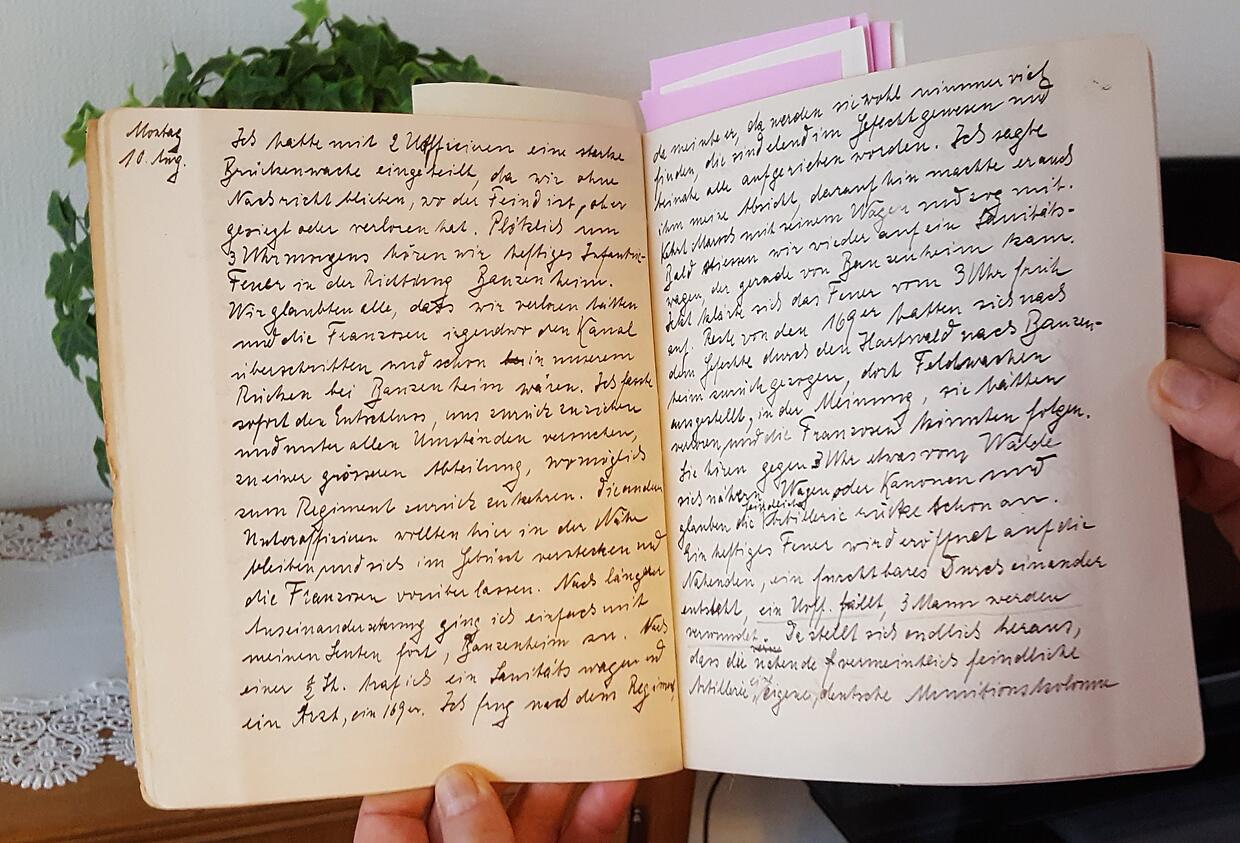 Montag
10. Aug.
Ich hatte mit 2 Uoffizieren eine starke
Brückenwache eingeteilt, da wir ohne
Nachricht blieben, wo der Feind ist, ober
gesiegt oder verloren hat. Plötzlich um
3 Uhr morgens hören wir heftiges Infantrie-
Feuer in der Richtung Banzenheim.
Wir glaubten alle, dass wir verloren hätten
und die Franzosen irgendwo den Kanal
überschritten und schon in unserem
Rücken bei Banzenheim wären. Ich fasste
sofort den Entschluss, uns zurück zu ziehen
und unter allen Umständen versuchen,
zu einer grösseren Abteilung, womöglich
zum Regiment zurück zu kehren. Die andern
Unteroffizieren wollten hier in der Nähe
bleiben und sich im Gebüsch verstecken und
die Franzosen vorüber lassen. Nach längerer
Auseinandersetzung ging ich einfach mit
meinen Leuten fort, Banzenheim zu. Nach
einer ½ St. traf ich ein Sanitätswagen und
ein Arzt, ein 169er. Ich frug nach dem Regiment,
da meinte er, da werden sie wohl nimmer viel
finden, die sind elend im Gefecht gewesen und
beinahe alle aufgerieben worden. Ich sagte
ihm meine Absicht, darauf hin machte er auch
Kehrt Marsch mit seinem Wagen und zog mit.
Bald stiessen wir wieder auf ein Sanitäts-
wagen, der gerade von Banzenheim kam.
Jetzt klärte sich das Feuer vom 3 Uhr früh
auf. Reste von den 169er hatten sich nach
dem Gefechte durch den Hartwald nach Banzen-
heim zurückgezogen, dort Feldwachen
ausgestellt, in der Meinung, sie hätten
verloren und die Franzosen könnten folgen.
Sie hören gegen 3 Uhr etwas vom Walde
sich nähern, Wagen oder Kanonen und
glauben die feindliche Artillerie rücke schon an.
Ein heftiges Feuer wird eröffnet auf die
Nahenden, ein furchtbares Durcheinander
entsteht, ein Uoff. fällt, 3 Mann werden
verwundet. Da stellt sich endlich heraus,
dass die nahende vermeintlich feindliche
Artillerie, eigene, deutsche Munitionskolonne